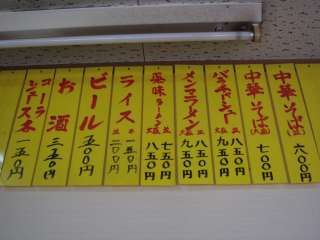 中華そば(並)
六〇〇円
中華そば(大盛)
七〇〇円
バラチャーシュー
並 八五〇円
大盛 九五〇円
メンマラーメン
並 八五〇円
大盛 九五〇円
薬味ラーメン
並 七五〇円
大盛 八五〇円
ライス
大 一五〇円
ビール
五〇〇円
お酒
三五〇円
コーラ
ジュース
一五〇円